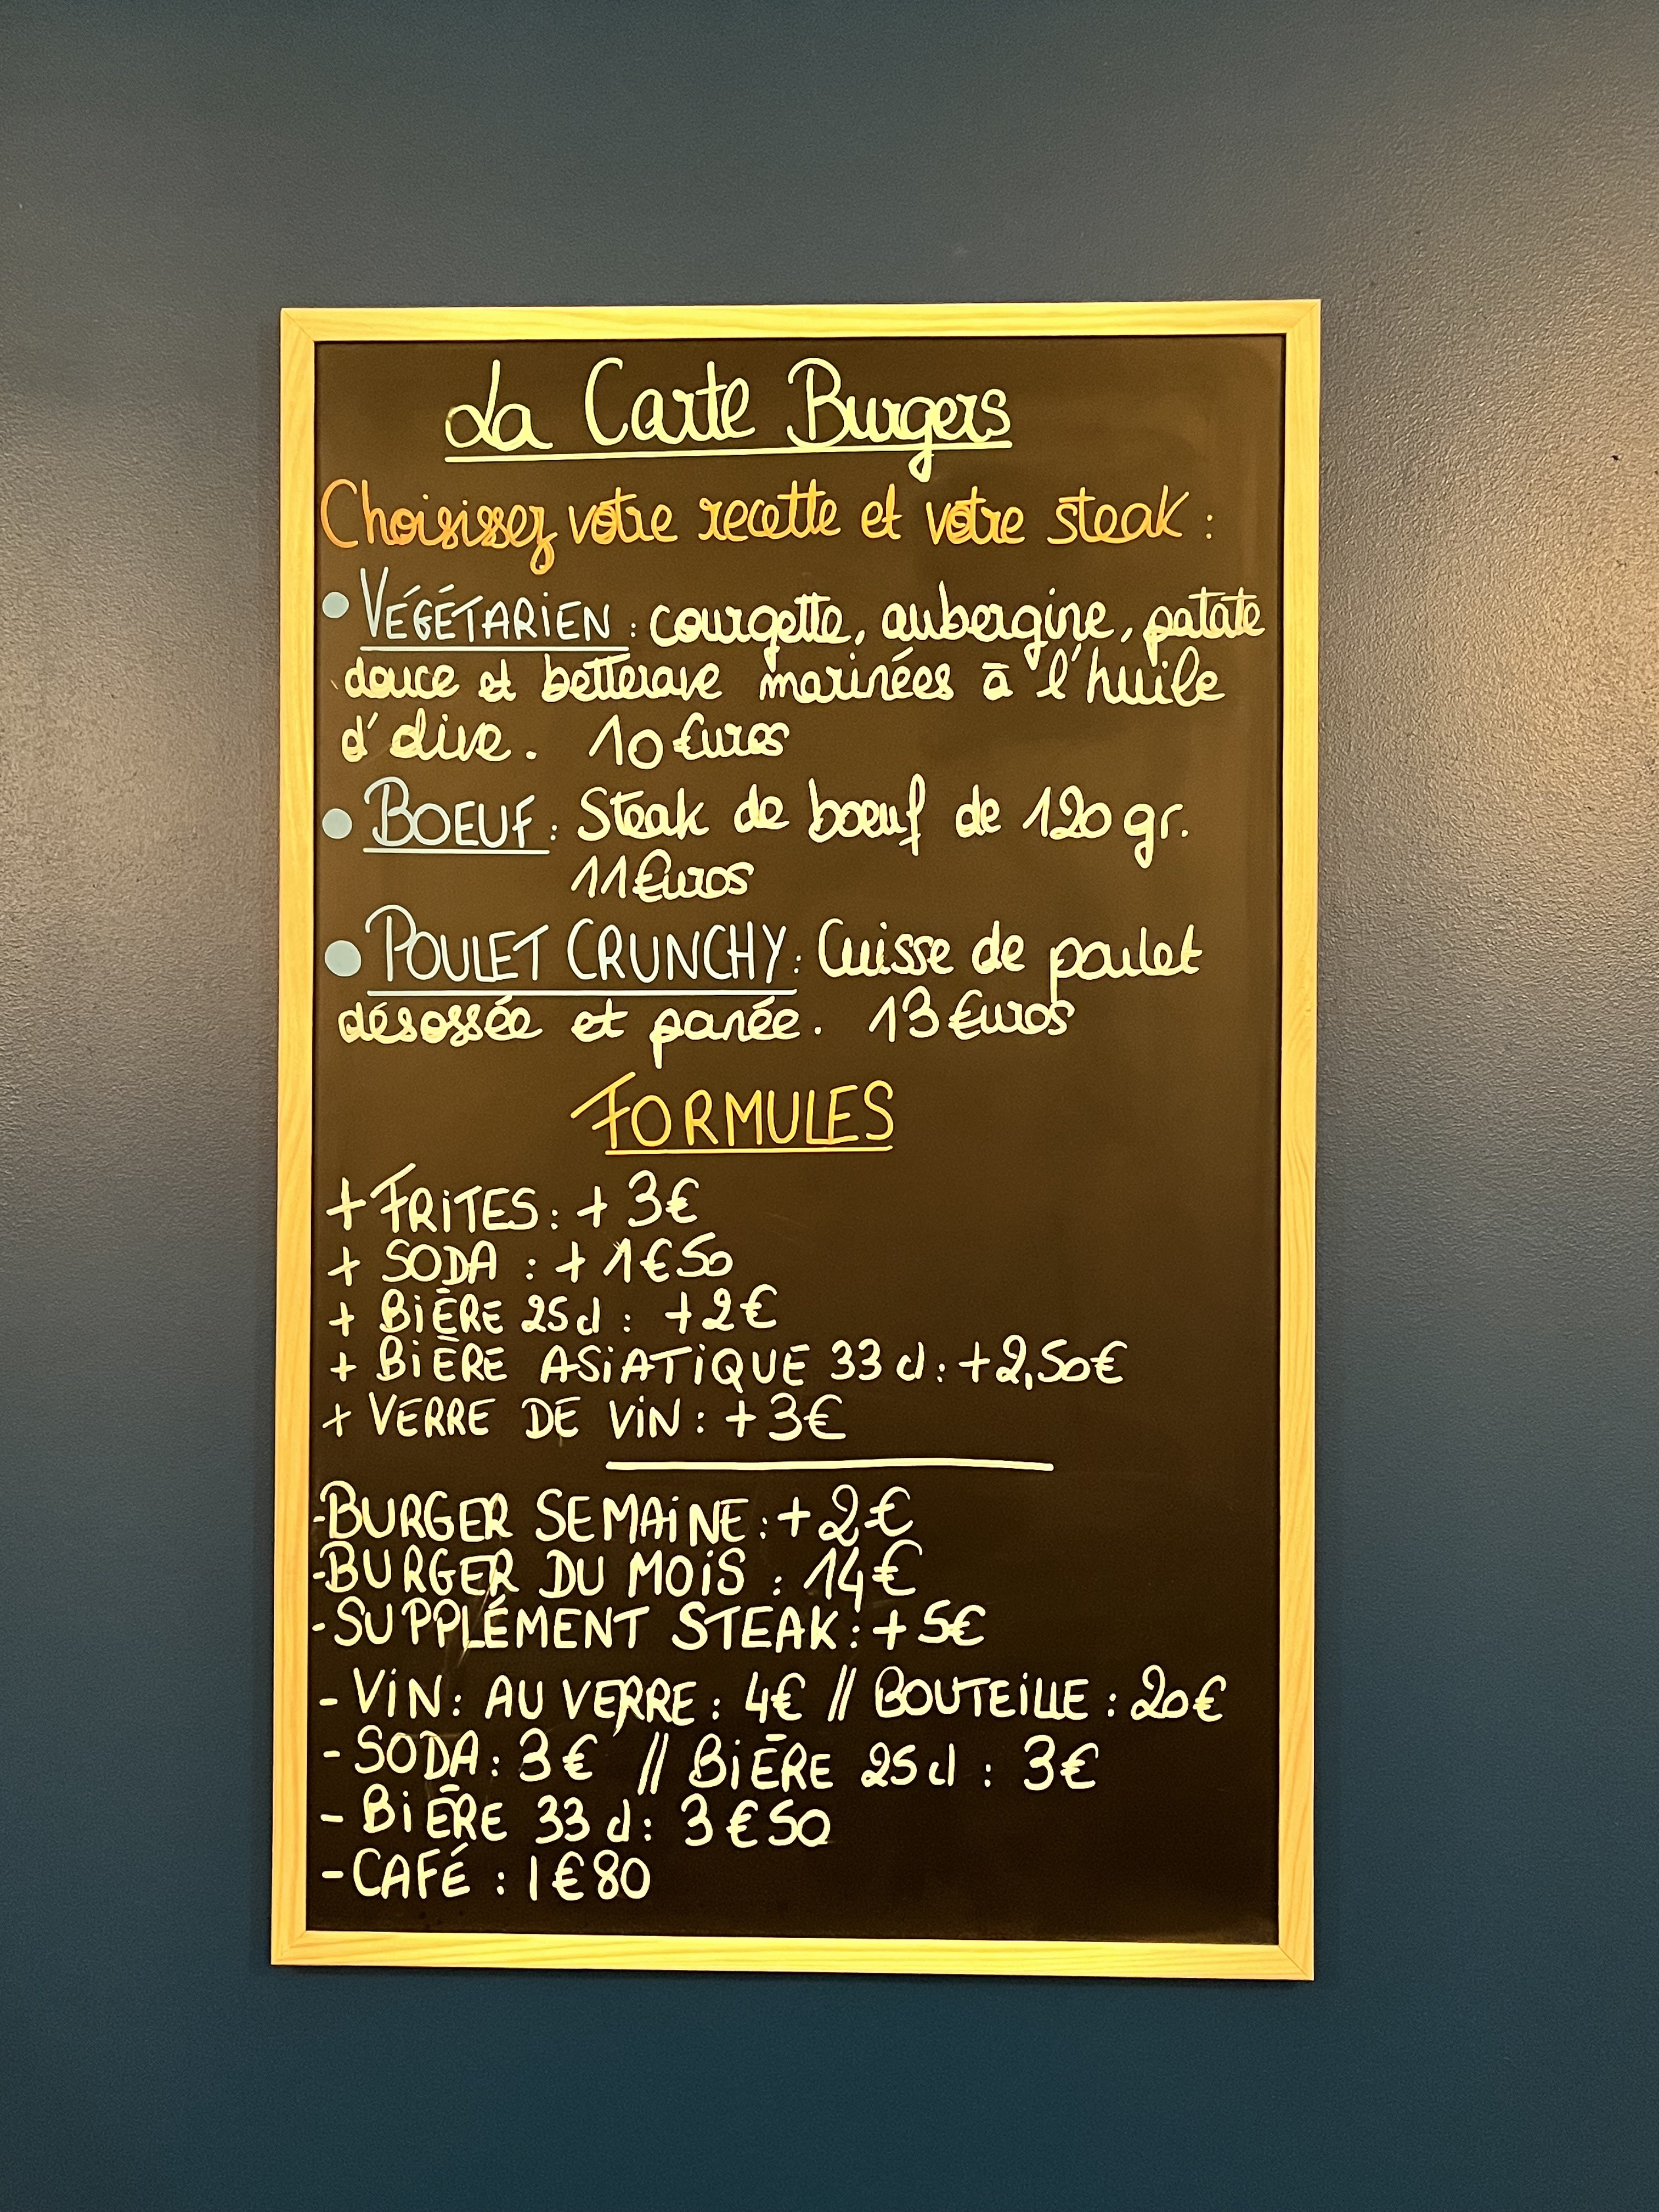 La Carte Burgers
Choisissez votre recette et votre steak :
• VÉGÉTARIEN : courgette, aubergine, patate
douce et betterave marinées à l'huile
d'olive. 10 €uros
• BOEUF : Steak de boeuf de 120 gr.
11 €uros
• POULET CRUNCHY : Cuisse de poulet
désossée et panée. 13 €uros
FORMULES
+ FRITES : + 3€
+ SODA : + 1€50
+ BIÈRE 25cl : +2€
+ BIÈRE ASIATIQUE 33 cl : +2,50€
+ VERRE DE VIN : +3€
-BURGER SEMAINE : +2€
-BURGER DU MOIS : 14€
-SUPPLÉMENT STEAK : +5€
- VIN : AU VERRE : 4€ // BOUTEILLE : 20€
- SODA : 3€ // BIÈRE 25cl : 3€
- BIÈRE 33 cl : 3€50
- CAFÉ : 1€80